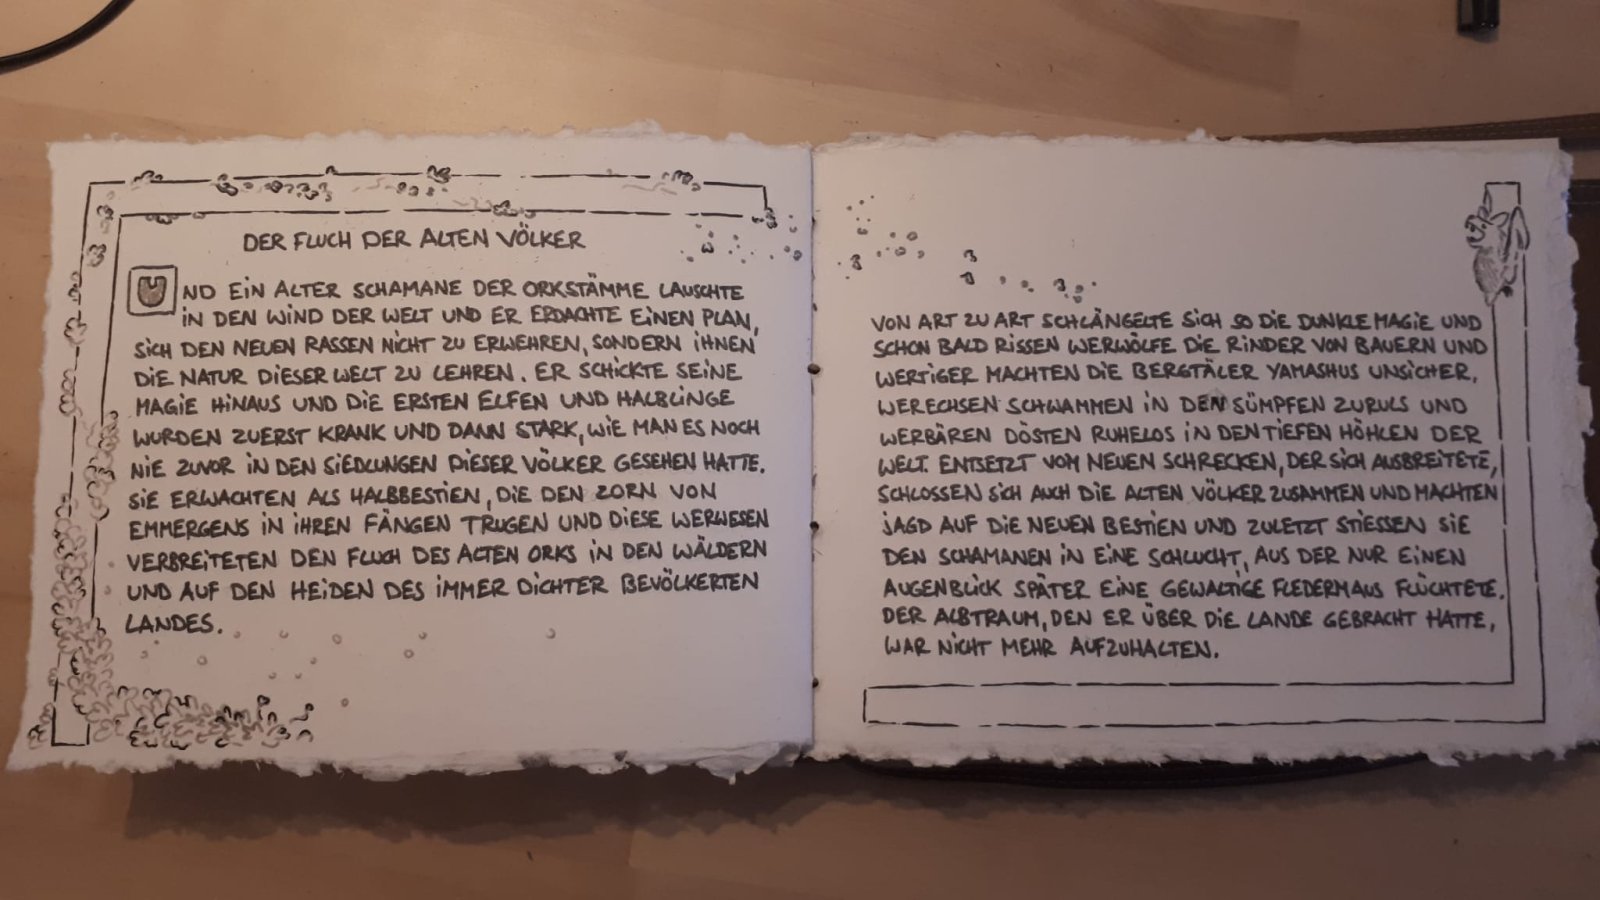 DER FLUCH DER ALTEN VÖLKER
UND EIN ALTER SCHAMANE DER ORKSTÄMME LAUSCHTE
IN DEN WIND DER WELT UND ER ERDACHTE EINEN PLAN,
SICH DEN NEUEN RASSEN NICHT ZU ERWEHREN, SONDERN IHNEN
DIE NATUR DIESER WELT ZU LEHREN. ER SCHICKTE SEINE
MAGIE HINAUS UND DIE ERSTEN ELFEN UND HALBLINGE
WURDEN ZUERST KRANK UND DANN STARK, WIE MAN ES NOCH
NIE ZUVOR IN DEN SIEDLUNGEN DIESER VÖLKER GESEHEN HATTE.
SIE ERWACHTEN ALS HALBBESTIEN, DIE DEN ZORN VON
EMMERGENS IN IHREN FÄNGEN TRUGEN UND DIESE WERWESEN
VERBREITETEN DEN FLUCH DES ALTEN ORKS IN DEN WÄLDERN
UND AUF DEN HEIDEN DES IMMER DICHTER BEVÖLKERTEN
LANDES.
VON ART ZU ART SCHLÄNGELTE SICH SO DIE DUNKLE MAGIE UND
SCHON BALD RISSEN WERWÖLFE DIE RINDER VON BAUERN UND
WERTIGER MACHTEN DIE BERGTÄLER YAMASHUS UNSICHER.
WERECHSEN SCHWAMMEN IN DEN SÜMPFEN ZURULS UND
WERBÄREN DÖSTEN RUHELOS IN DEN TIEFEN HÖHLEN DER
WELT. ENTSETZT VOM NEUEN SCHRECKEN, DER SICH AUSBREITETE,
SCHLOSSEN SICH AUCH DIE ALTEN VÖLKER ZUSAMMEN UND MACHTEN
JAGD AUF DIE NEUEN BESTIEN UND ZULETZT STIESSEN SIE
DEN SCHAMANEN IN EINE SCHLUCHT, AUS DER NUR EINEN
AUGENBLICK SPÄTER EINE GEWALTIGE FLEDERMAUS FLÜCHTETE.
DER ALBTRAUM, DEN ER ÜBER DIE LANDE GEBRACHT HATTE,
WAR NICHT MEHR AUFZUHALTEN.